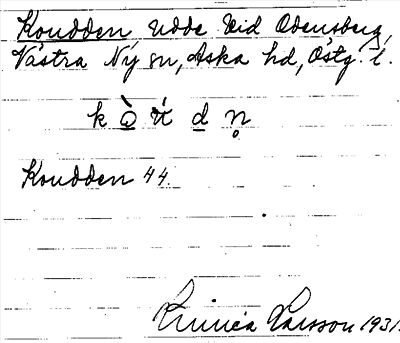 Koudden udde vid Odensberg,
Västra Ny sn, Aska hd, Östg. l.
k ò̱ ú d̲ n̥
Koudden 44.
Larsson 1931.